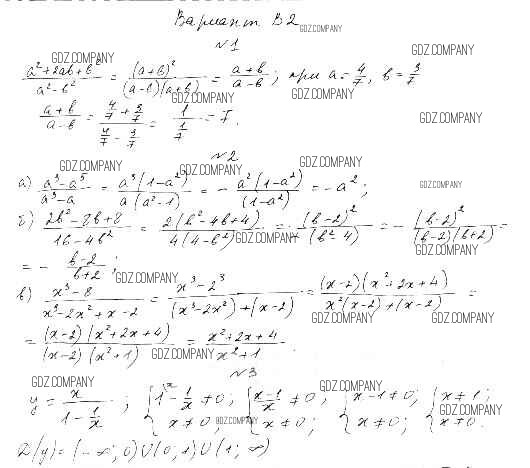 Вариант В2
GDZ.COMPANY
№1
GDZ.COMPANY GDZ.COMPANY
(a²+2ab+b²)/(a²-b²) = (a+b)²/((a-b)(a+b)) = (a+b)/(a-b); при a=4/7, b=3/7
GDZ.COMPANY GDZ.COMPANY
(a+b)/(a-b) = (4/7+3/7)/(4/7-3/7) = 1/(1/7) = 7.
GDZ.COMPANY
№2
GDZ.COMPANY GDZ.COMPANY GDZ.COMPANY
а) (a³-a⁵)/(a³-a) = a³(1-a²)/(a(a²-1)) = - a²(1-a²)/(1-a²) = -a²;
GDZ.COMPANY
б) (2b²-8b+8)/(16-4b²) = 2(b²-4b+4)/(4(4-b²)) = - (b-2)²/(b²-4) = - (b-2)²/((b-2)(b+2)) =
GDZ.COMPANY GDZ.COMPANY
= - (b-2)/(b+2);
GDZ.COMPANY
в) (x³-8)/(x³-2x²+x-2) = (x³-2³)/((x³-2x²)+(x-2)) = (x-2)(x²+2x+4)/(x²(x-2)+(x-2)) =
GDZ.COMPANY GDZ.COMPANY
= (x-2)(x²+2x+4)/((x-2)(x²+1)) = (x²+2x+4)/(x²+1).
GDZ.COMPANY
№3
GDZ.COMPANY GDZ.COMPANY
y = x/(1-1/x); {1-1/x≠0, x≠0; {(x-1)/x≠0, x≠0; {x-1≠0, x≠0; {x≠1; x≠0.
GDZ.COMPANY GDZ.COMPANY
D(y)=(-∞;0)∪(0;1)∪(1;∞)